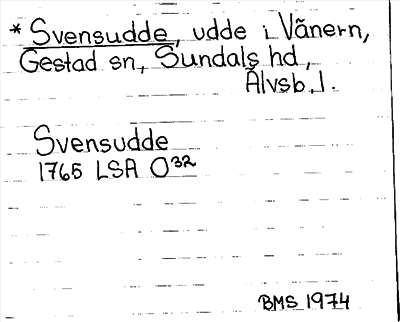 * Svensudde, udde i Vänern,
Gestad sn, Sundals hd,
Älvsb. l.
Svensudde
1765 LSA O32
BMS 1974